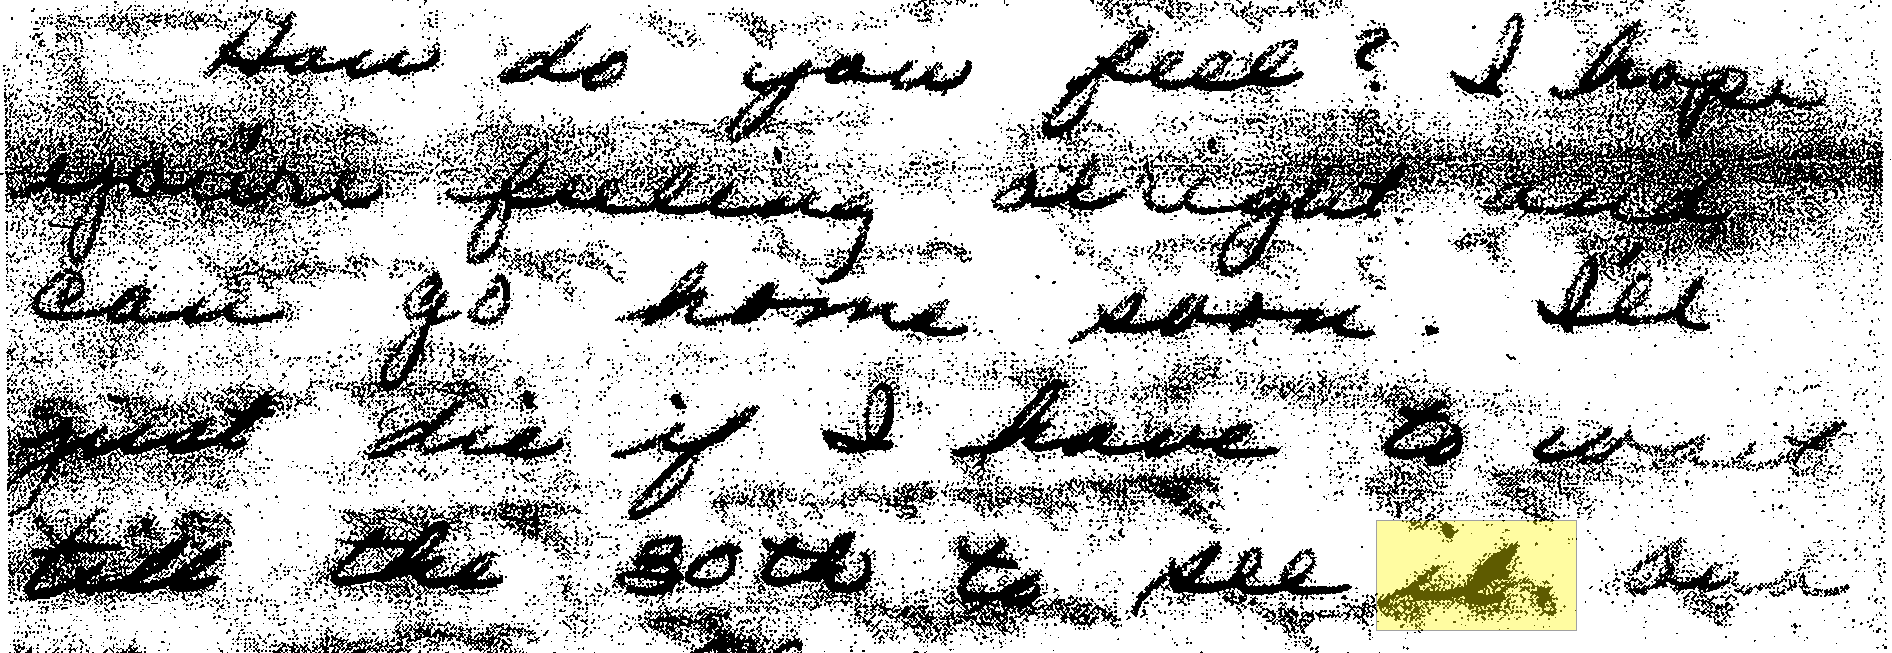 How do you feel? I hope
you're feeling alright and
can go home soon. I'll
just die if I have to wait
till the 30th to see it.